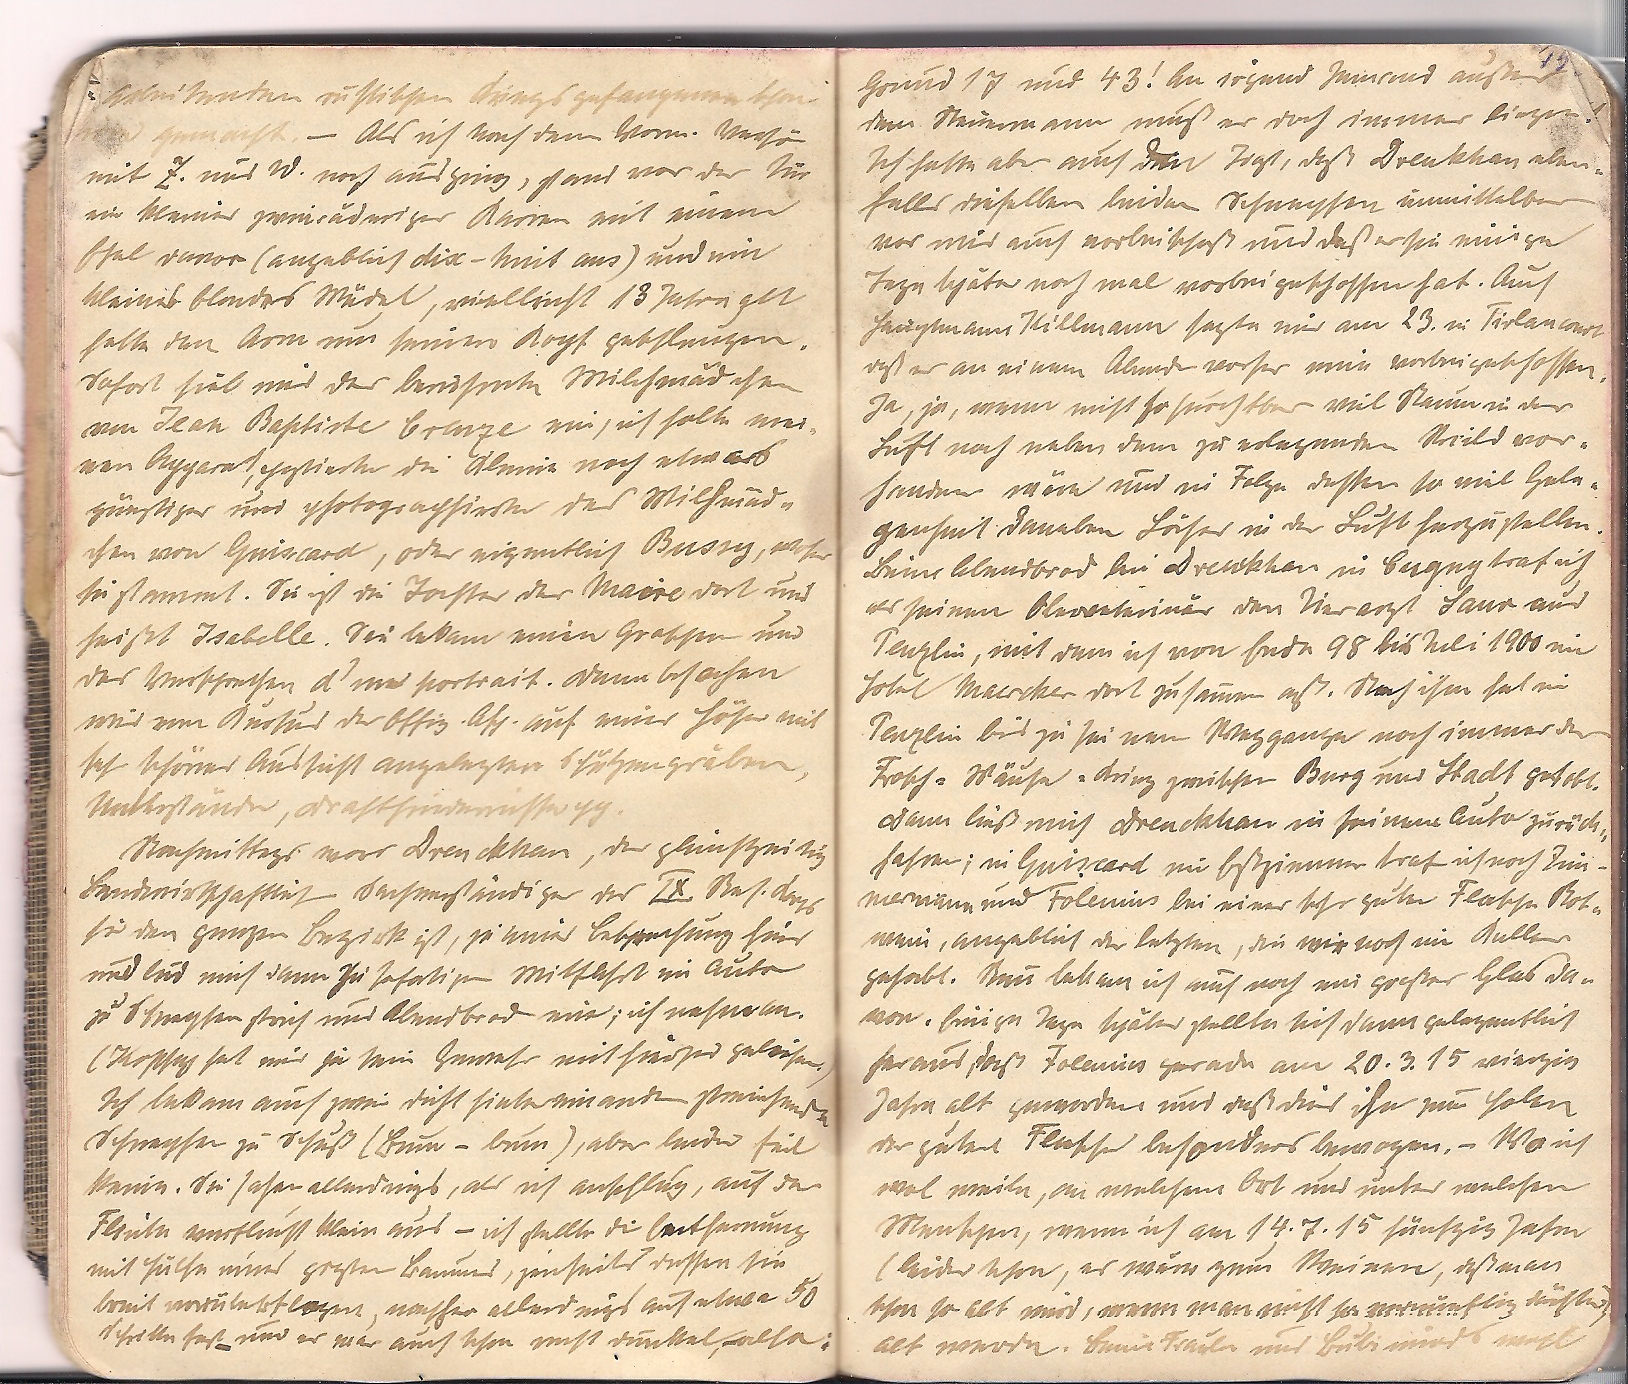 arbeitenden russischen Kriegsgefangenen schon
gemacht. — Als ich nach dem Vorm. Verhör
mit Z. und W. noch ausging, stand vor der Tür
ein kleiner zweirädriger Karren mit einem
Esel davor (angeblich dix-huit ans) und ein
kleines blondes Mädel, vielleicht 13 Jahre alt
hatte den Arm um seinen Kopf geschlungen.
Sofort fiel mir das berühmte Milchmädchen
von Jean Baptiste Greuze ein, ich holte mei-
nen Apparat, gestierte die Kleine noch etwas
günstiger und photographierte das Milchmäd-
chen von Guiscard, oder eigentlich Bussy, woher
sie stammt. Sie ist die Tochter des Maire dort und
heißt Isabelle. Sie bekam einen Groschen und
das Versprechen d'un portrait. Dann besahen
wir vom Kursus der Offiz. Asp. auf einer Höhe mit
sehr schöner Aussicht angelegten Schützengräben,
Unterstände, Drahthindernisse pp.
Nachmittags war Drenckhan, der gleichzeitig
Landwirtschaftlich Sachverständiger des IX. Res. Korps
für den ganzen Bezirk ist, zu einer Besprechung hier
und lud mich dann zu sofortiger Mitfahrt im Auto
zu Schnepfenstrich und Abendbrod ein; ich nahm an.
( hat mir ja sein Gewehr mit hierher geliehen.)
Ich bekam auch zwei dicht hintereinander streichende
Schnepfen zu Schuß (Bum – bum), aber leider fiel
keine. Sie sahen allerdings, als ich anschlug, auf der
Flinte verflucht klein aus – ich stellte die Entfernung
mit Hülfe eines großen Baumes, jenseits dessen sie
breit vorüberflogen, nachher allerdings auf etwa 50
Schritte fest und es war auch schon recht dunkel, also:
Grund 17 und 43! An irgend Jemand außer
dem Steuermann muß es doch immer liegen!
Ich hatte aber auch den Trost, daß Drenkhan eben-
falls dieselben beiden Schnepfen unmittelbar
vor mir auch vorbeischoß und daß er sie einige
Tage später noch mal vorbeigeschossen hat. Auch
Hauptmann Killmann sagte mir am 23. in Tirlancourt
daß er an einem Abende vorher eine vorbeigeschossen.
Ja, ja, wenn nicht so furchtbar viel Raum in der
Luft noch neben dem zu erlegenden Wild vor-
handen wäre und in Folge dessen so viel Gele-
genheit daneben Löcher in der Luft herzustellen.
Beim Abendbrod bei Drenckhan in Cugny traf ich
als seinen Oberveterinär den Tierarzt aus
Penzlin, mit dem ich von Ende 98 bis Juli 1900 im
Hotel Maercker dort zusammen aß. Nach ihm hat in
Penzlin bis zu seinem Weggange noch immer der
Frosch-Mäuse-Krieg zwischen Burg und Stadt getobt.
Dann ließ mich Drenckhan in seinem Auto zurück-
fahren; in Guiscard im Eßzimmer traf ich noch Zim-
mermann und Folenius bei einer sehr guten Flasche Rot-
wein, angeblich der letzten, die wir noch im Keller
gehabt. Nun bekam ich auch noch ein großes Glas da-
von. Einige Tage später stellte sich dann gelegentlich
heraus, daß Folenius gerade am 20. 3. 15 vierzig
Jahre alt geworden und daß dies ihn zum holen
der guten Flasche besonders bewogen. – Wo ich
wol weile, an welchem Ort und unter welchen
Menschen, wenn ich am 14. 7. 15 fünfzig Jahre
(leider schon, es wäre zum Weinen, daß man
schon so alt wird, wenn man nicht so vernünftig dächte)
alt werde. Beim und Bubi wirds wohl